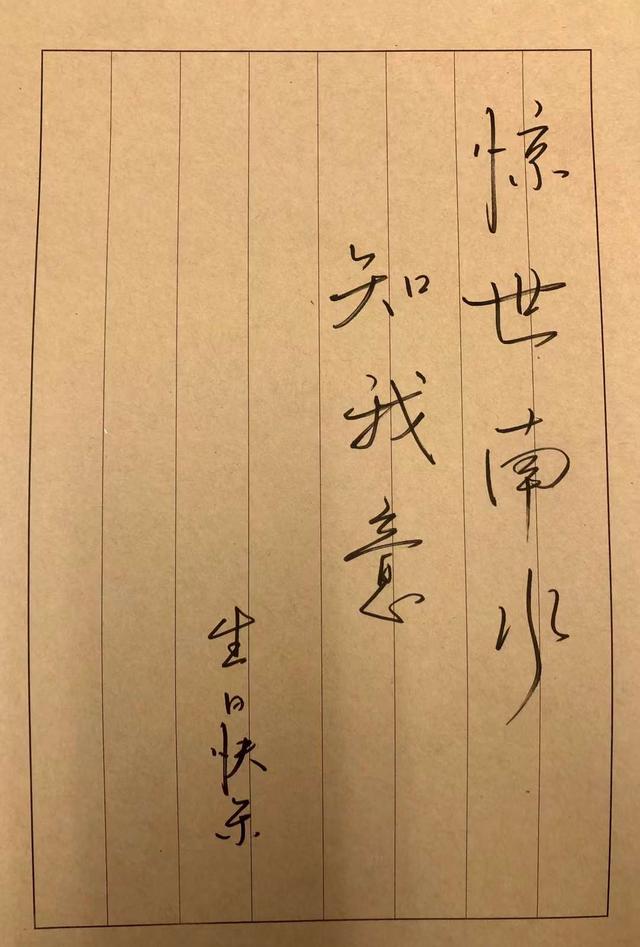 惊世南水
知我意
生日快乐